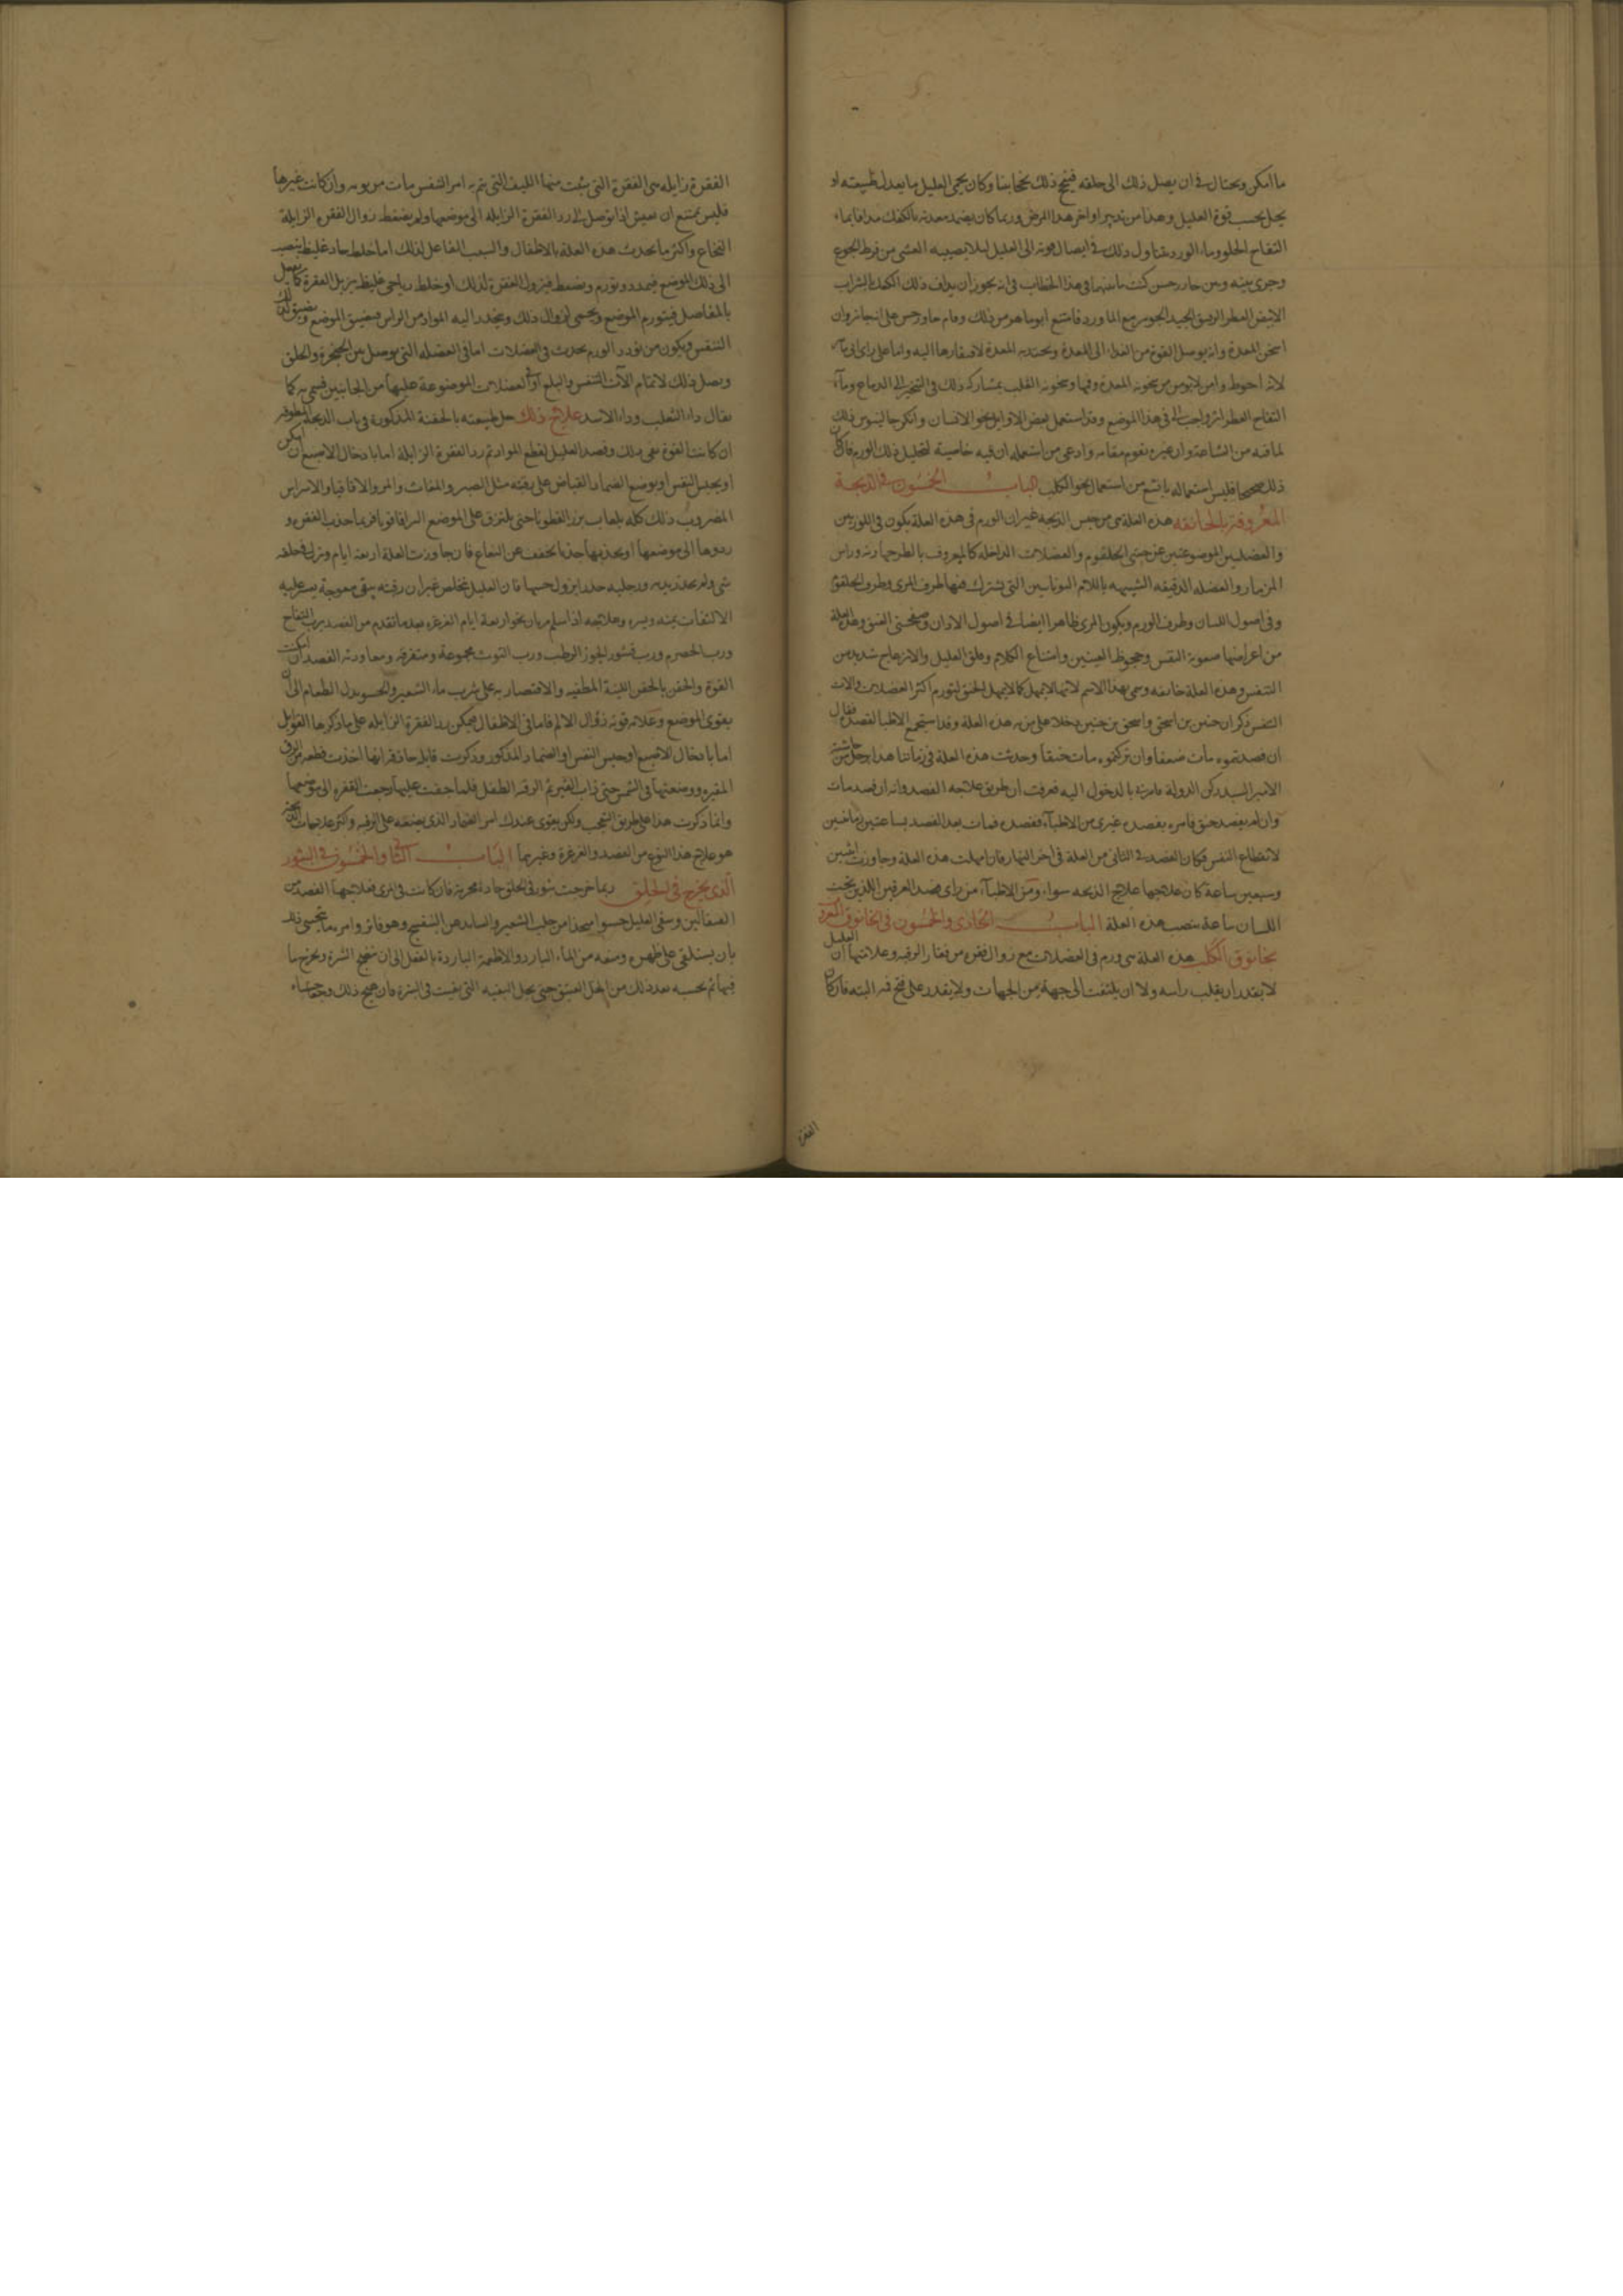 ما امكن ويحتال في ان يصل ذلك الى حلقه فينجح ذلك نجحا بينا وكان يحمى العليل ما يعدل طبيعته او
يحل بحسب قوة العليل وهذا من تدبير اواخر هذا المرض وربما كان يضمد معدته بالكعك مدافا بماء
التفاح الحلو وماء الورد يتناول ذلك في ايصال قوته الى العليل ليلا يصيبه الغشى من فرط الجوع
وجرى بينه وبين خادر حسن كنت ما بينهما في هذا الخطاب في انه يجوز ان يداف ذلك الكعك بالشراب
الابيض العطر الرقيق الجيد الجوهر مع الماورد فامتنع ابو ماهر من ذلك
اسخن المعدة وانه يوصل القوة من الغذاء الى المعدة
لانه احوط وامن لا يومن من سخونة المعدة وفمها وسخونة القلب بمشاركة ذلك في التبخير الى الدماغ وماء
التفاح العطر اثر واجب اليه في هذا الموضع وقد استعمل بعض الاوايل نجو الانسان وانكر جالينوس ذلك
لما فيه من الشناعة وان غيره يقوم مقامه وادعى من استعمله ان فيه خاصية لتحليل ذلك الورم فان كان
ذلك صحيحا فليس استعماله باشنع من استعمال نجو الكلب الباب الخمسون في الذبحة
المعروفة بالخانقه هذه العلة هي من جنس الذبحة غير ان الورم في هذه العلة يكون في اللوزتين
والعضلتين الموضوعتين عن جنبتى الحلقوم والعضلات الداخلة كالمعروف بالطرجهارة وراس
المزمار والعضله الدقيقه الشبيهه باللام اليونانيين التي تشترك فيها طرف المرى وطرف الحلقوم
وفي اصول اللسان وطرف الورم ويكون المرى ظاهرا ايضا في اصول الاذان وصفحتى العنق وهذه العلة
من اعراضها صعوبة النفس وجحوظ العينين وامتناع الكلام وقلق العليل والانزعاج شديد من
التنفس وهذه العلة خانقه وسمى بهذا الاسم لانها لا تمهل كما لا يمهل الخنق لتورم اكثر العضلات والات
التنفس ذكر ان حنين بن اسحق واسحق بن حنين دخلا على من به هذه العلة وقد استجمع الاطبا لفصده فقال
ان فصدتموه مات ضعفا وان تركتموه مات خنقا وحدثت هذه العلة في زماننا هذا برجل من حاشية
الامير السيد ركن الدولة فامرنى بالدخول اليه فعرفت ان طريق علاجه الفصد وانه ان فصد مات
وان لم يفصد خنق فامره بفصده غيرى من الاطباء ففصده فمات بعد الفصد بساعتين زمانيتين
لانقطاع النفس فكان الفصد في الثانى من العلة في اخر النهار فان امهلت هذه العلة وجاوزت اثنتين
وسبعين ساعة كان علاجها علاج الذبحه سواء ومن الاطباء من راى فصد العرقين اللذين تحت
اللسان ساعة تنصب هذه العلة الباب الحادى والخمسون في الخانوق المعروف
بخانوق الكلب هذه العلة هي ورم في العضلات مع زوال فقره من فقار الرقبه وعلامتها ان العليل
لا يقدر ان يقلب راسه ولا ان يلتفت الى جهة من الجهات ولا يقدر على فتح فمه البته فان كان
الفقرة
الفقرة زايله هي الفقرة التي ينبت منها الليف التي يتم به امر التنفس مات من يومه وان كانت غيرها
فليس يمتنع ان يعيش اذا توصل الى رد الفقرة الزايلة الى موضعها ولم يضغط زوال الفقره الزايلة
النخاع واكثر ما يحدث هذه العلة بالاطفال والسبب الفاعل لذلك اما خلط حاد غليظ ينصب
الى ذلك الموضع فيمدده ويورم ويضغط فيزول الفقرة لذلك او خلط رياحى غليظ يزيل الفقرة كما يعمل
بالمفاصل فيتورم الموضع ويحمى لزوال ذلك وينحدر اليه المواد من الراس فيضيق الموضع
التنفس ويكون من تورد الورم يحدث في العضلات اما في العضله التي توصل بين الحنجرة والحلق
ويصل ذلك لاتمام الآت التنفس والبلع او العضلات الموضوعة عليها من الجانبين فسمى به كما
يقال داء الثعلب وداء الاسد علاج ذلك حل طبيعته بالحقنة المذكورة في باب الذبحة المطلوقه
ان كانت القوة تفى بذلك وفصد العليل لقطع المواد ثم رد الفقرة الزايلة اما بادخال الاصبع ان امكن
او بحبس النفس او بوضع الضماد القباض على رقبته مثل الصبر والمغاث والمر والاقاقيا والاسراس
المضروب ذلك كله بلعاب بزر القطونا حتى يلتزق على الموضع التزاقا قويا فربما جذب الفقره و
ردوها الى موضعها او يجذبها جذبا يخفف عن النخاع فان جاوزت العلة اربعة ايام ونزل في حلقه
شى ولم يخدر يديه ورجليه خدرا يزول حسها فان العليل يتخلص غير ان رقبته تبقى معوجة يعسر عليه
الالتفات يمنه ويسره وعلاجه اذا سلم زمان نحو اربعة ايام الغرغره بعد ما تقدم من الفصد برب التفاح
ورب الحصرم ورب قشور الجوز الرطب ورب التوث مجموعة ومتفرقه ومعاودة الفصد ان امكنت
القوة والحقن بالحقن اللينة المطفيه والاقتصار به على شرب ماء الشعير والحسو بدل الطعام الى ان
يقوى الموضع وعلامه قوته زوال الالم فاما في الاطفال فيمكن رد الفقرة الزايله على ما ذكرها القوابل
اما بادخال الاصبع او حبس النفس او الضماد المذكور وذكرت قابلة حاذقة انها اخذت قطعه من الزق
المقيره ووضعتها في الشمس حتى ذاب القير ثم الرقبة الطفل فلما جفت عليها رجعت الفقره الى موضعها
وانما ذكرت هذا على طريق التعجب ولكن يقوى عندك امر الضماد الذى يضعه على الرقبه
هو علاج هذا النوع من الفصد والغرغرة وغيرهما الباب الثانى والخمسون في البثور
الذى يخرج في الحلق ربما خرجت بثور في الحلق حادة محرقة فان كانت في المرى فعلاجها الفصد من
القيفالين وسقى العليل حسوا متخذا من حلب الشعير والسابد دهن البنفسج وهو فاتر وامره
بان يستلقى على ظهره ومنعه من الماء البارد والاطعمة الباردة بالفعل الى ان تنضج البثرة ويخرج ما
فيها ثم يحسيه بعد ذلك من الخل العتيق حتى يحل البقيه التي بقيت في البثره فان هيج ذلك وجعا